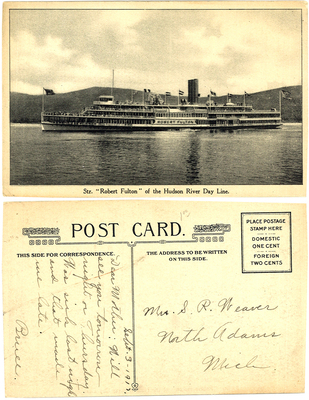 ROBERT FULTON
Str. "Robert Fulton" of the Hudson River Day Line.
POST CARD.
THIS SIDE FOR CORRESPONDENCE.
THE ADDRESS TO BE WRITTEN
ON THIS SIDE.
PLACE POSTAGE
STAMP HERE
DOMESTIC
ONE CENT
FOREIGN
TWO CENTS
Sept. 3-1917.
Dear Mother, Will
see you tomorrow
night or Thursday.
Was wash last nigh
and boat made
us late.
Bruce.
Mrs. S. R. Weaver
North Adams
Mich.